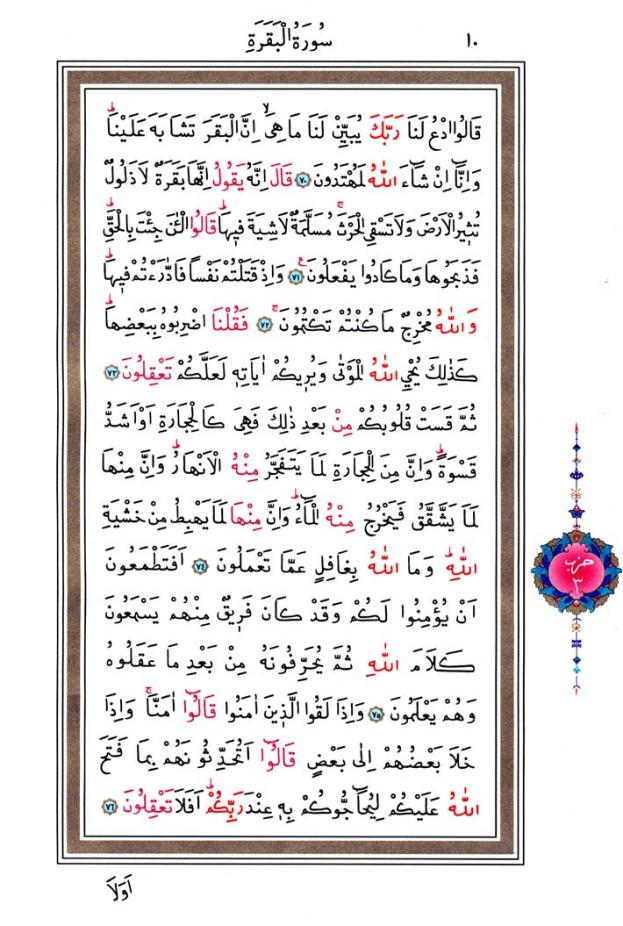 ١٠
سُورَةُ الْبَقَرَةِ
قَالُوا ادْعُ لَنَا رَبَّكَ يُبَيِّنْ لَنَا مَا هِىَۙ اِنَّ الْبَقَرَ تَشَابَهَ عَلَيْنَاۜ
وَاِنَّٓا اِنْ شَٓاءَ اللّٰهُ لَمُهْتَدُونَ ﴿٧٠﴾ قَالَ اِنَّهُ يَقُولُ اِنَّهَا بَقَرَةٌ لَا ذَلُولٌ
تُثِيرُ الْاَرْضَ وَلَا تَسْقِى الْحَرْثَۚ مُسَلَّمَةٌ لَا شِيَةَ فِيهَاۜ قَالُوا الْـٰٔنَ جِئْتَ بِالْحَقِّۜ
فَذَبَحُوهَا وَمَا كَادُوا يَفْعَلُونَ۟ ﴿٧١﴾ وَاِذْ قَتَلْتُمْ نَفْساً فَادّٰرَءْتُمْ فِيهَاۜ
وَاللّٰهُ مُخْرِجٌ مَا كُنْتُمْ تَكْتُمُونَۚ ﴿٧٢﴾ فَقُلْنَا اضْرِبُوهُ بِبَعْضِهَاۜ
كَذٰلِكَ يُحْيِى اللّٰهُ الْمَوْتٰى وَيُرِيكُمْ اٰيَاتِهِ لَعَلَّكُمْ تَعْقِلُونَ ﴿٧٣﴾
ثُمَّ قَسَتْ قُلُوبُكُمْ مِنْ بَعْدِ ذٰلِكَ فَهِىَ كَالْحِجَارَةِ اَوْ اَشَدُّ
قَسْوَةًۜ وَاِنَّ مِنَ الْحِجَارَةِ لَمَا يَتَفَجَّرُ مِنْهُ الْاَنْهَارُۜ وَاِنَّ مِنْهَا
لَمَا يَشَّقَّقُ فَيَخْرُجُ مِنْهُ الْمَٓاءُۜ وَاِنَّ مِنْهَا لَمَا يَهْبِطُ مِنْ خَشْيَةِ
اللّٰهِۜ وَمَا اللّٰهُ بِغَافِلٍ عَمَّا تَعْمَلُونَ ﴿٧٤﴾ اَفَتَطْمَعُونَ
اَنْ يُؤْمِنُوا لَكُمْ وَقَدْ كَانَ فَرِيقٌ مِنْهُمْ يَسْمَعُونَ
كَلَامَ اللّٰهِ ثُمَّ يُحَرِّفُونَهُ مِنْ بَعْدِ مَا عَقَلُوهُ
وَهُمْ يَعْلَمُونَ ﴿٧٥﴾ وَاِذَا لَقُوا الَّذِينَ اٰمَنُوا قَالُٓوا اٰمَنَّاۚ وَاِذَا
خَلَا بَعْضُهُمْ اِلٰى بَعْضٍ قَالُٓوا اَتُحَدِّثُونَهُمْ بِمَا فَتَحَ
اللّٰهُ عَلَيْكُمْ لِيُحَٓاجُّوكُمْ بِهِ عِنْدَ رَبِّكُمْۜ اَفَلَا تَعْقِلُونَ ﴿٧٦﴾
حزب
٣
اَوَلَا